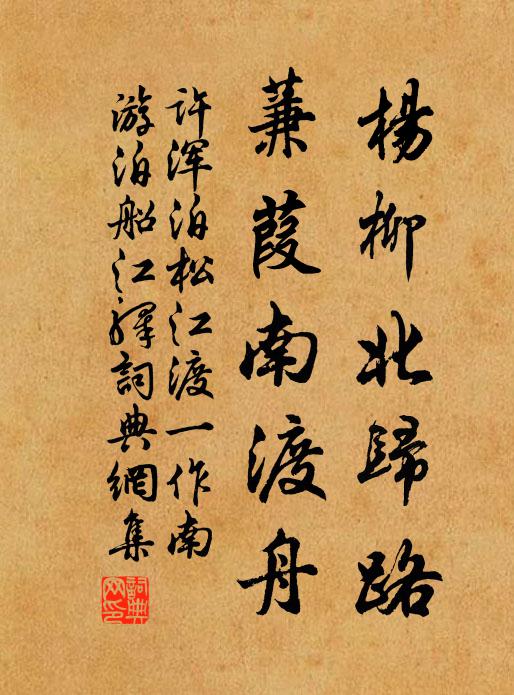 楊柳北歸路
蒹葭南渡舟
许浑泊松江渡一作南
游泊船江驛詞典網集
詞典
网印